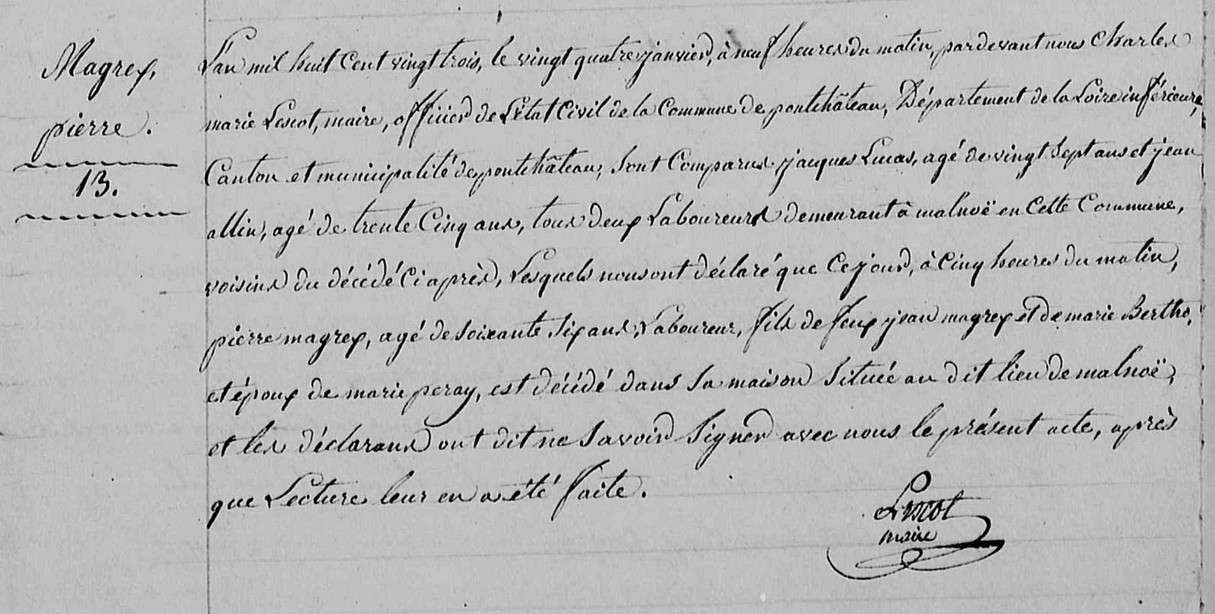 Magrex,
pierre.
13.
L'an mil huit cent vingt trois, le vingt quatre janvier, à neuf heures du matin, pardevant nous Charles
marie Lescot, maire, officier de L'Etat Civil de la Commune de pontchâteau, Département de la Loire inférieure,
Canton et municipalité de pontchâteau, sont Comparus jacques Lucas, agé de vingt sept ans et jean
allin, agé de trente Cinq ans, tous deux Laboureurs demeurant à malnoë en Cette Commune,
voisins du décédé Ci après, Lesquels nous ont déclaré que Ce jour, à Cinq heures du matin,
pierre magrex, agé de soixante six ans, Laboureur, fils de feux jean magrex et de marie Bertho,
et époux de marie peray, est décédé dans sa maison située au dit lieu de malnoë,
et les déclarans ont dit ne savoir signer avec nous le présent acte, après
que Lecture leur en a été faite.
Lescot
maire